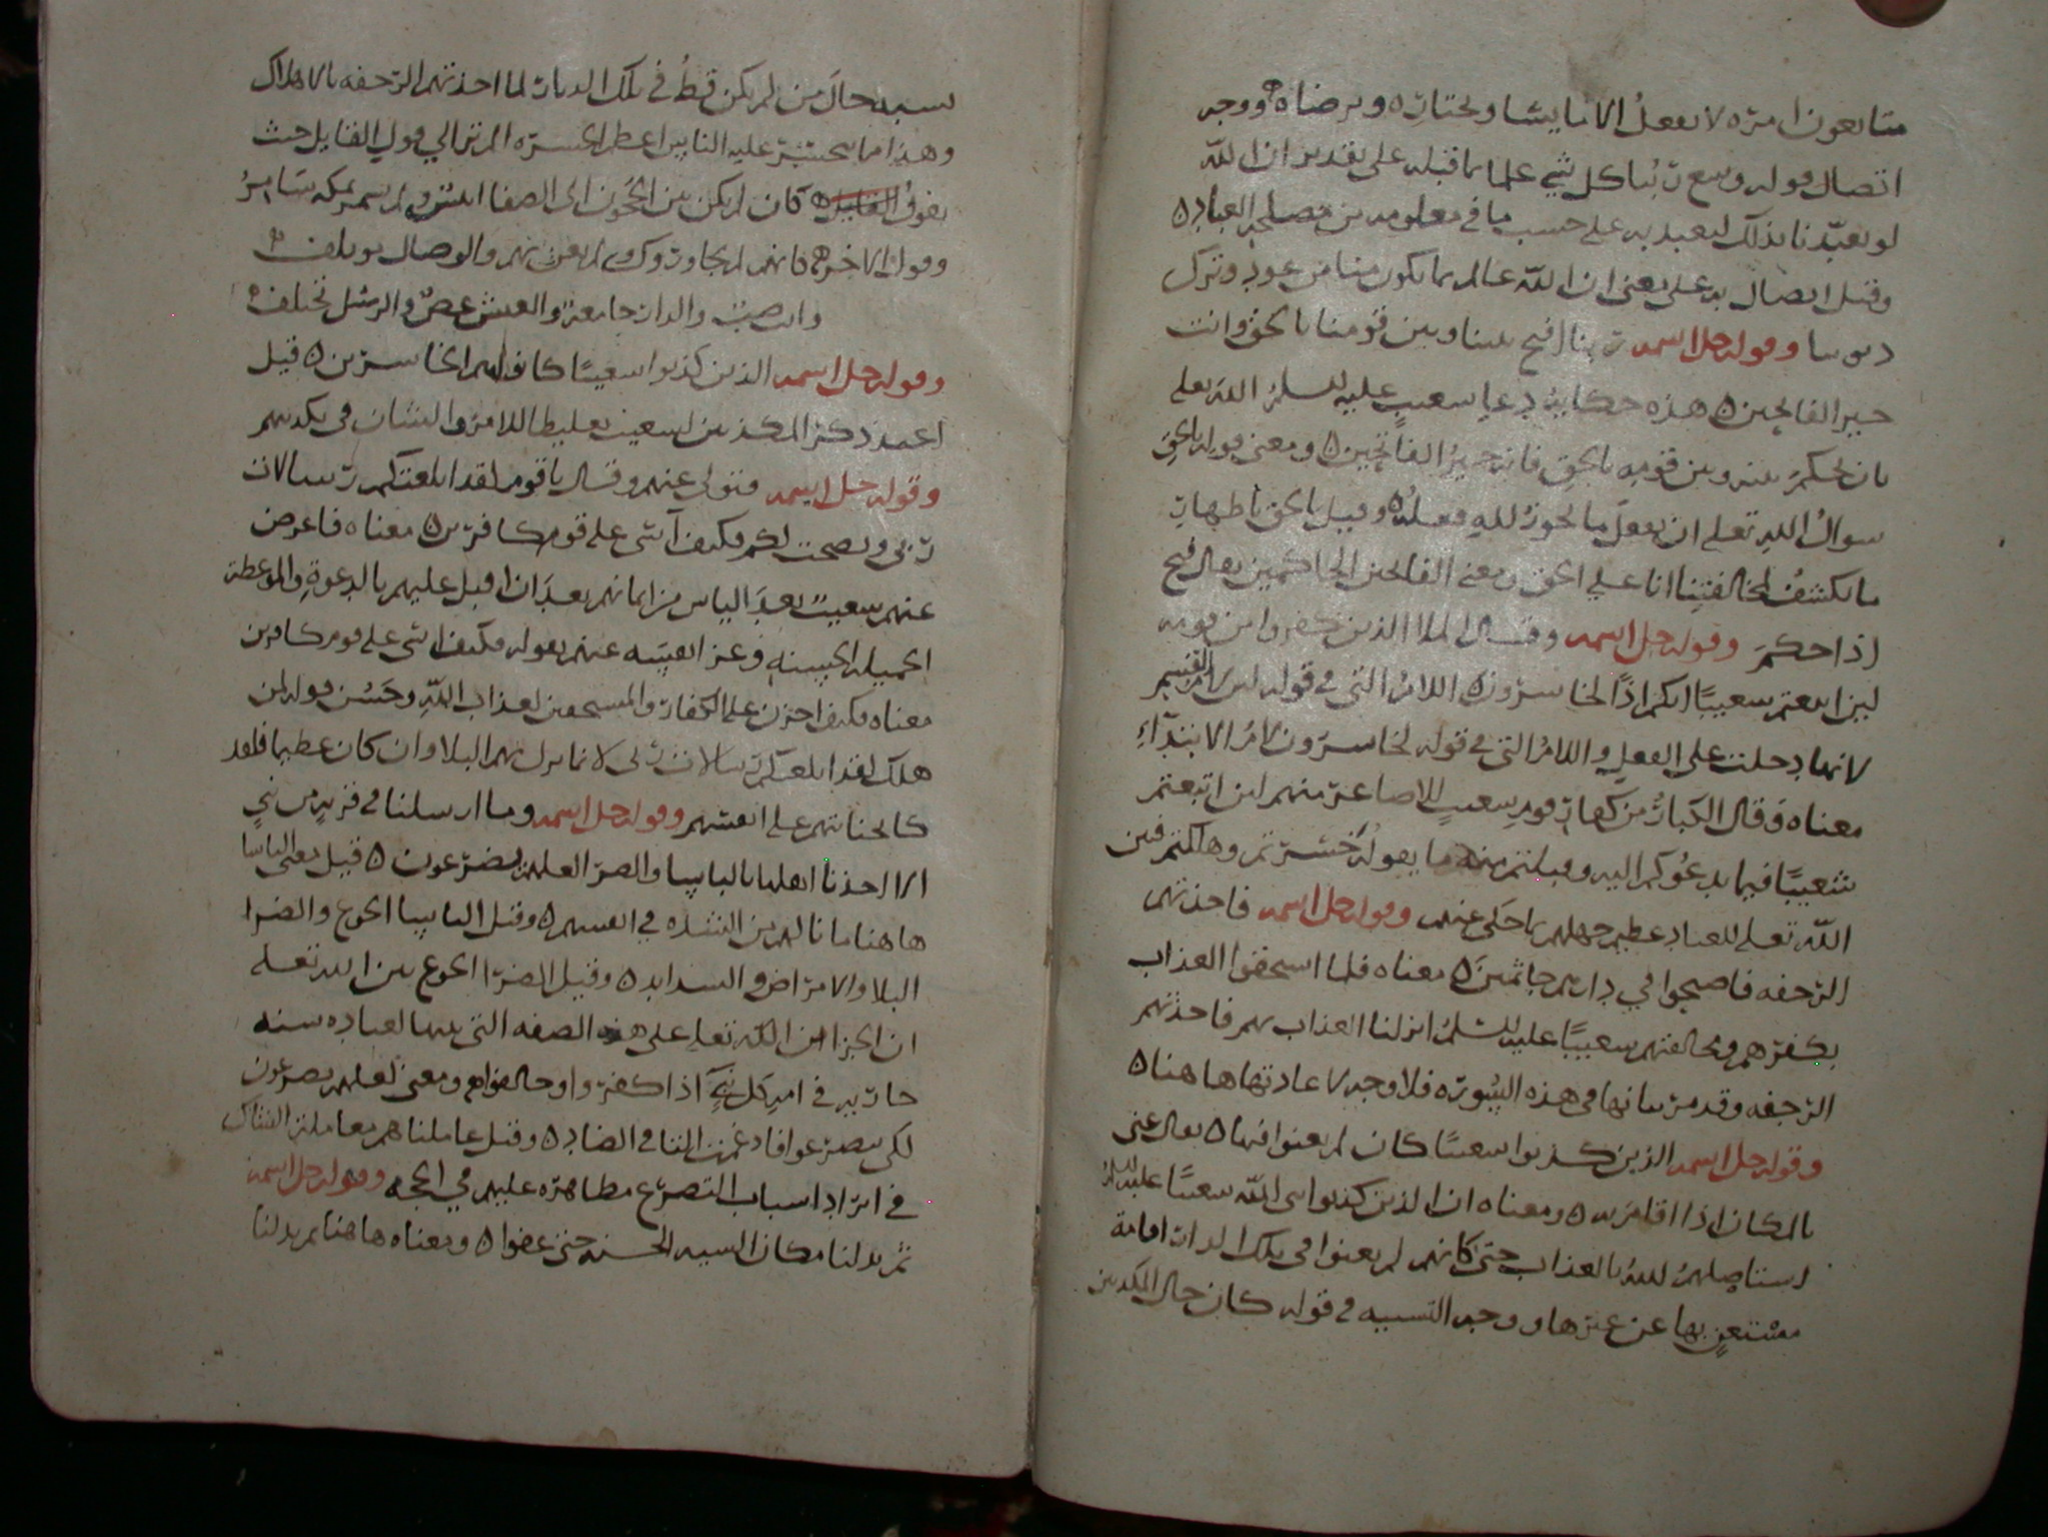 متابعون امره لا نفعل الا ما يشا ويختاره ويرضاه ووجه
اتصال قوله وسع ربنا كل شي علما بما قبله على تقدير ان الله
لو تعبدنا بذلك لتعبد به على حسب ما في معلومه من مصلحه العباد ه
وقيل اتصال به على معنى ان الله عالم بما يكون منا من عود وترك
وقوله جل اسمه ربنا افتح بيننا وبين قومنا بالحق وانت
خير الفاتحين ه هذه حكاية دعا شعيب عليه السلم الله تعلى
بان يحكم بينه وبين قومه بالحق فانه خير الفاتحين ه ومعنى قوله بالحق
سوال الله تعلى ان يفعل ما يجوز لله فعله ه وقيل بالحق باظهار
ما يكشف لمخالفينا انا على الحق ومعنى الفاتحين الحاكمين يقال فتح
اذا حكم وقوله جل اسمه وقال الملا الذين كفروا من قومه
لين اتبعتم شعيبا انكم اذا لخاسرون ه اللام التي في قوله لين لام القسم
لانها دخلت على الفعل واللام التي في قوله لخاسرون لام الابتداء
معناه وقال الكبار من كفار قوم شعيب للاصاغر منهم لين اتبعتم
شعيبا فيما يدعوكم اليه وقبلتم منه ما يقوله خسرتم وهلكتم فبين
الله تعلى للعباد عظيم جهلهم بما حكى عنهم وقوله جل اسمه فاخذتهم
الرجفه فاصبحوا في دارهم جاثمين ه معناه فلما استحقوا العذاب
بكفرهم ومخالفتهم شعيبا عليه السلم انزلنا العذاب بهم فاخذتهم
الرجفه وقد مر بيانها في هذه السوره فلا وجه لاعادتها هاهنا ه
وقوله جل اسمه الذين كذبوا شعيبا كان لم يغنوا فيها ه يقال غنى
بالمكان اذا اقام به ه ومعناه ان الذين كذبوا نبي الله شعيبا عليه السلم
استاصلهم الله بالعذاب حتى كانهم لم يغنوا في تلك الديار اقامة
مستغن بها عن غيرها ووجه التشبيه في قوله كان حال المكذبين
يشبه حال من لم يكن قط في تلك الديار لما اخذتهم الرجفه بالاهلاك
وهذا مما يتحسر عليه الناس اعظم الحسره الم تر الي قول القايل حيث
يقول كان لم يكن بين الحجون الى الصفا انيس ولم يسمر بمكه سامر
وقول الاخر كانهم لم يجاوروك ولم نعرف بهم والوصال موتلف
وانت صب والدار جامعة والعيش غض والرسل تختلف
وقوله جل اسمه الذين كذبوا شعيبا كانوا هم الخاسرين ه قيل
اعيد ذكر المكذبين لشعيب تغليظا للامر والشان في تكذيبهم
وقوله جل اسمه فتولى عنهم وقال يا قوم لقد ابلغتكم رسالات
ربي ونصحت لكم فكيف آسى على قوم كافرين ه معناه فاعرض
عنهم شعيب بعد الياس من ايمانهم بعد ان اقبل عليهم بالدعوة والموعظة
الجميله الحسنه وعزا نفسه عنهم بقوله فكيف اسى على قوم كافرين
معناه فكيف احزن على الكفار والمستحقين لعذاب الله وحسن قوله لمن
هلك لقد ابلغتكم رسالات ربي لان ما نزل بهم البلا وان كان عظيما فلقد
كان لجنايتهم على انفسهم وقوله جل اسمه وما ارسلنا في قرية من نبي
الا اخذنا اهلها بالباسا والضر العلهم يضرعون ه قيل معنى الباسا
هاهنا ما نالهم من الشده في انفسهم ه وقيل الباسا الجوع والضرا
البلا والامراض والشدايد ه وقيل الضرا الجوع بين الله تعلى
ان اجرا امن الله تعلى على هذه الصفه التي بينها لعباده سنه
جاريه في امم كل نبي اذا كفروا وخالفواهم ومعنى لعلهم يضرعون
لكي يتضرعوا فادغمت التا في الضاد ه وقيل عاملناهم معاملة الشاك
في ايراد اسباب التضرع مظاهره عليهم في الحجه وقوله جل اسمه
ثم بدلنا مكان السيه الحسنه حتى عفوا ه ومعناه هاهنا ثم بدلنا